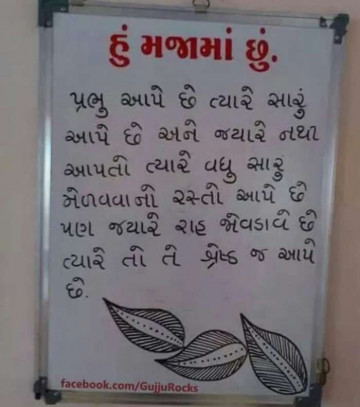 હું મજામાં છું.
પ્રભુ આપે છે ત્યારે સારું
આપે છે અને જયારે નથી
આપતો ત્યારે વધુ સારું
મેળવવાનો રસ્તો આપે છે
પણ જયારે રાહ જોવડાવે છે
ત્યારે તો તે શ્રેષ્ઠ જ આપે
છે.
facebook.com/GujjuRocks